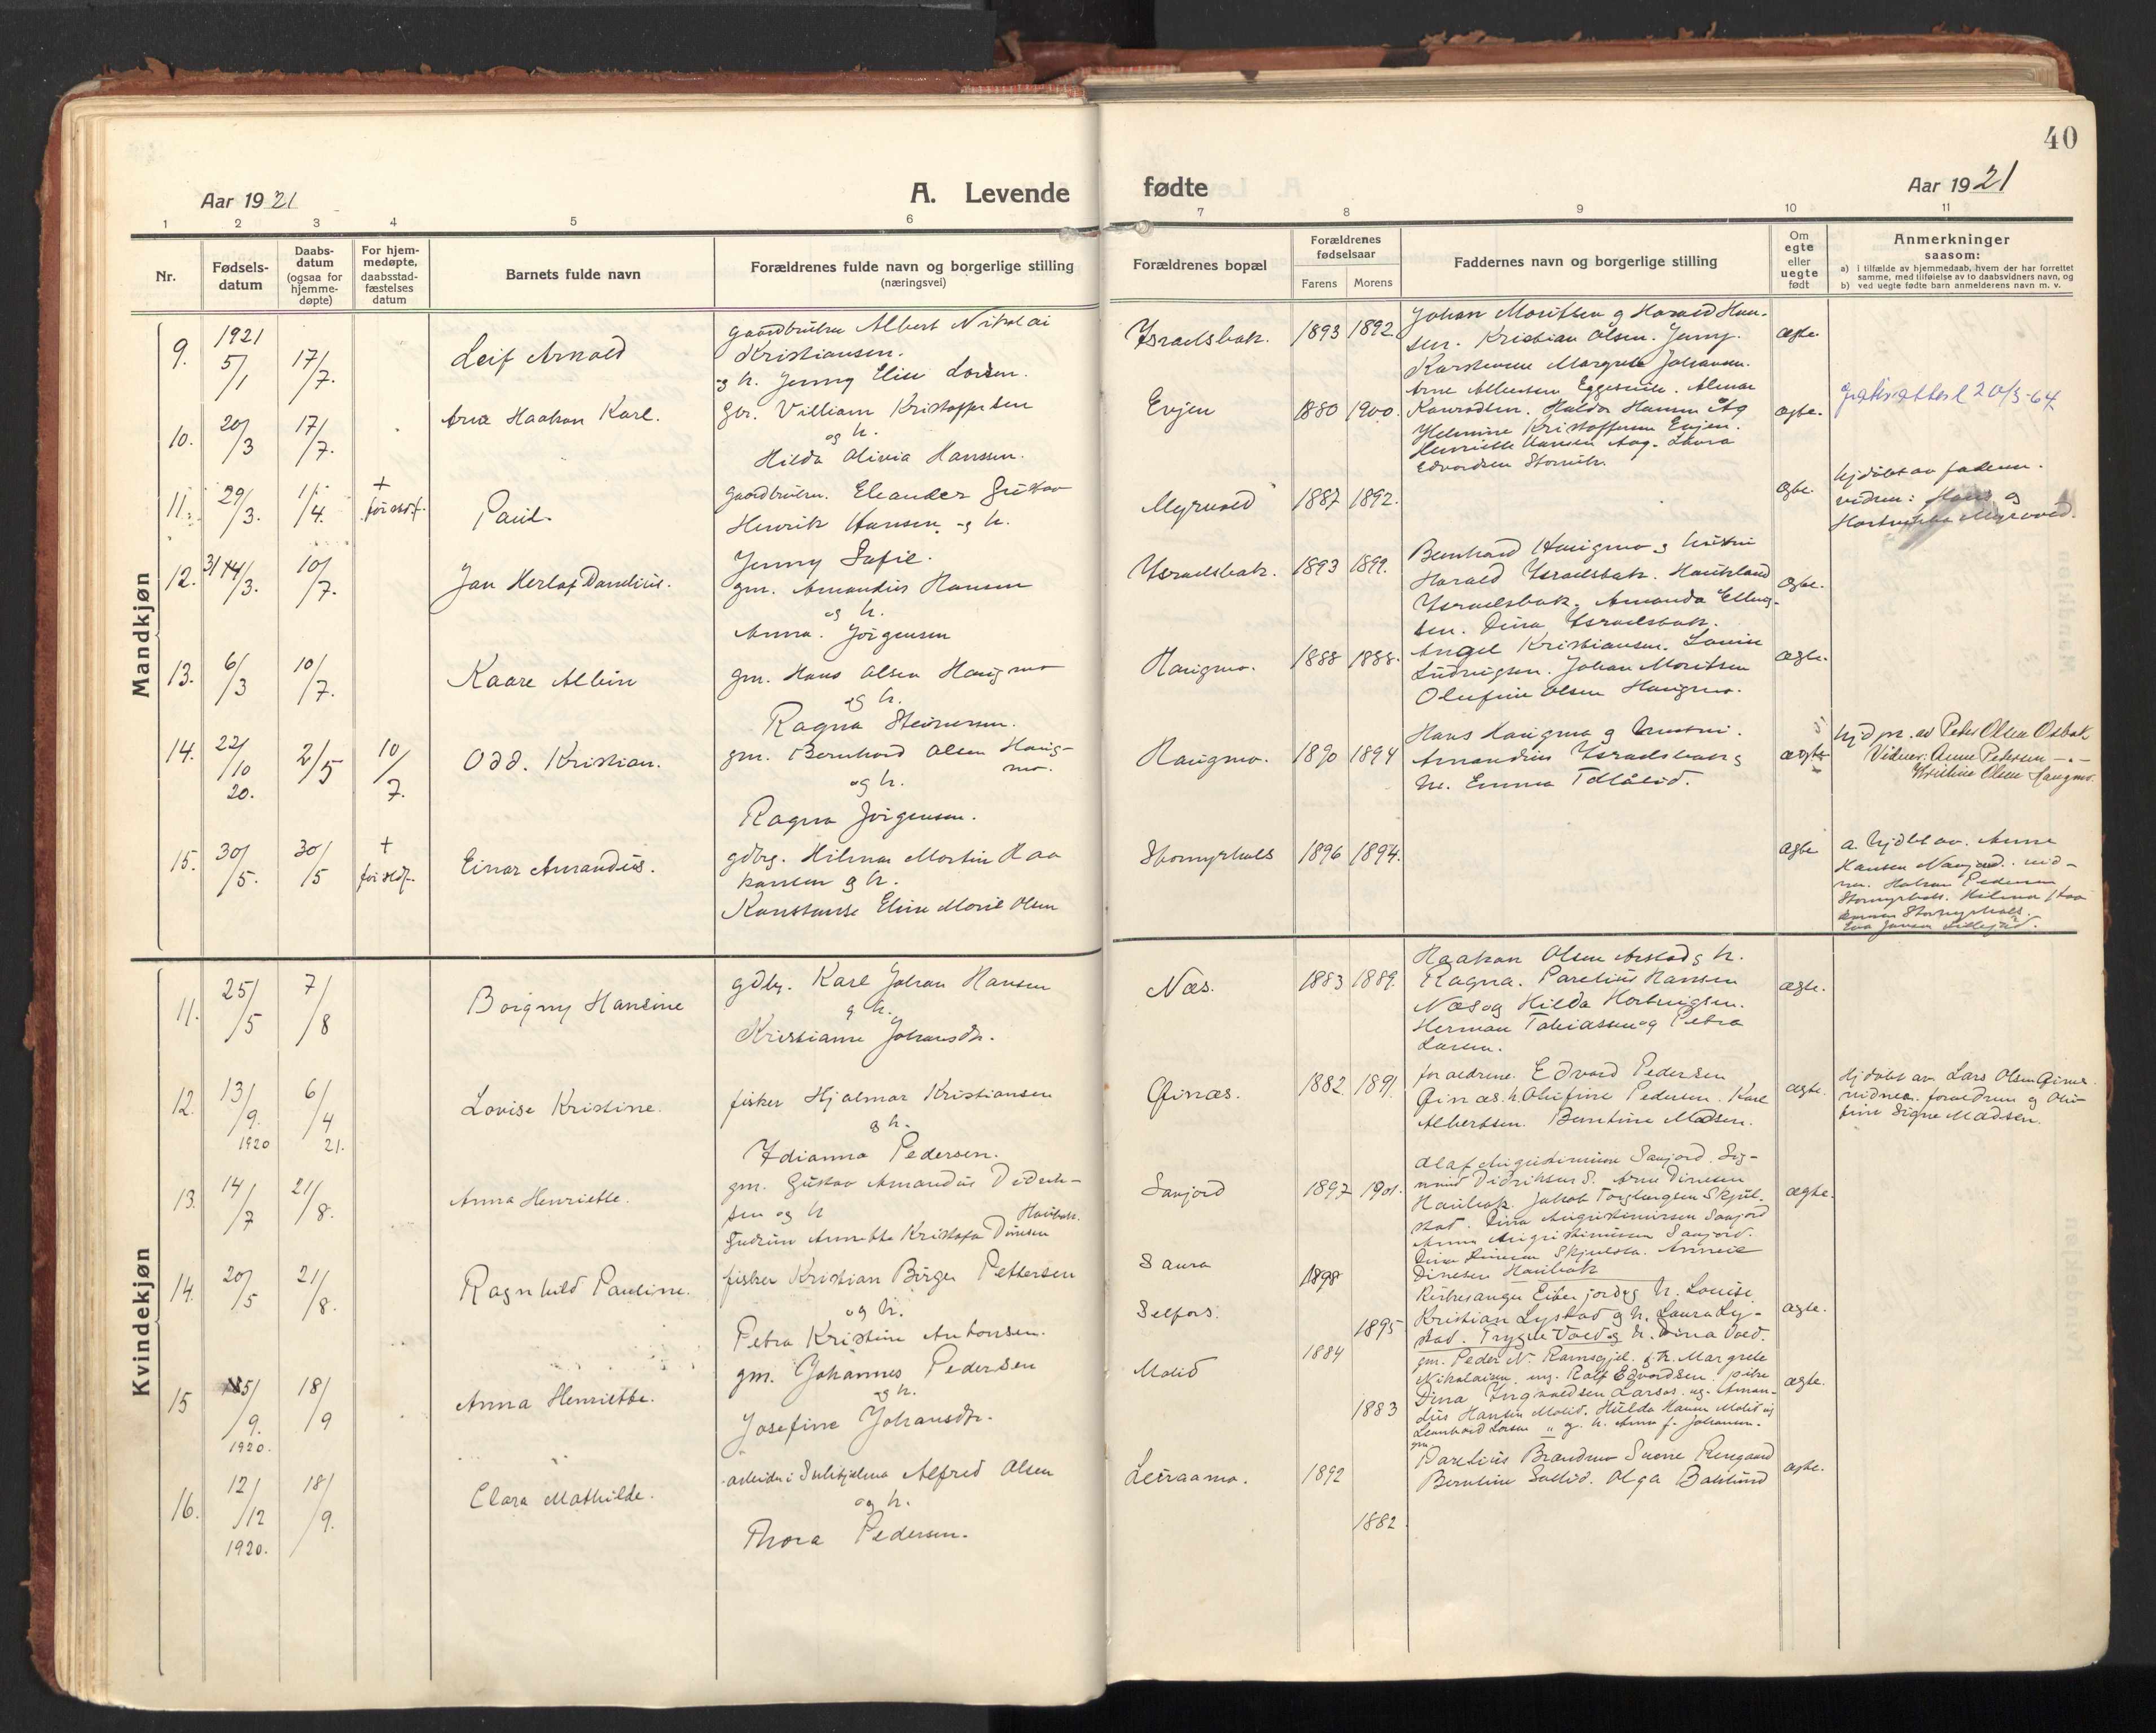 40
Aar 1921
A. Levende fødte
Aar 1921
1 2 3 4 5 6 7 8 9 10 11
Nr.
Fødsels-
datum
Daabs-
datum
(ogsaa for
hjemme-
døpte)
For hjem-
medøpte,
daabsstad-
fæstelses
datum
Barnets fulde navn
Forældrenes fulde navn og borgerlige stilling
(næringsvei)
Forældrenes bopæl
Forældrenes
fødselsaar
Farens Morens
Faddernes navn og borgerlige stilling
Om
egte
eller
uegte
født
Anmerkninger
saasom:
a) i tilfælde av hjemmedaab, hvem der har forrettet
samme, med tilføielse av to daabsvidners navn, og
b) ved uegte fødte barn anmelderens navn m. v.
Mandkjøn
9. 1921 5/1 17/7. Leif Arnold
Albert Nikolai
Kristiansen.
og h. Jenny Elise
Ysraelsbak. 1893 1892.
Johan Moritsen og Harald Han-
sen. Kristian Olsen. Jenny
Margrete Johansen.
ægte.
10. 20/3 17/7. Haakon Karl.
Gbr. Villiam Kristoffersen
og h.
Hilda Olivia Hanssen.
Evjen 1880 1900.
Arne Albertsen
Konradsen. Hulda Hansen
Helmine Kristoffersen Evjen.
Henriette Hansen
Edvardsen
ægte.
20/3-64
11. 29/3. 1/4. + før stdf. Paul.
Gaardbruker. Eleander Gustav
Henrik Hansen og h.
Jenny Sofie.
Myrvold 1887 1892.
ægte.
hjdøbt av faderen.
vidner: Hans og
Myrvold.
12. 31/3. 10/7. Jan Herlof Danelius.
gm. Amandus Hansen
og h.
Anna. Jörgensen
Ysraelsbak. 1893 1899.
Bernhard Haugmo og hustru
Harald Ysraelsbak. Haukland
Ysraelsbak. Amanda Elling-
sen. Dina Ysraelsbak.
ægte.
13. 6/3 10/7. Kaare Albin
gm. Hans Olsen Haugmo
og h.
Ragna Steinersen.
Haugmo. 1888 1888.
Angel Kristiansen. Louise
Ludvigsen. Johan Moritsen
Olufine Olsen Haugmo.
ægte.
14. 22/10 20. 2/5 10/7. Odd. Kristian.
gm. Bernhard Olsen Haug-
mo.
og h.
Ragna Jörgensen.
Haugmo. 1890 1894
Hans Haugmo og hustru.
Amandus Ysraelsbak og
h. Emma
ægte
hjdp. av Peder Olsen Osbak
Vidner: Anne Petersen
Kristine Olsen Haugmo.
15. 30/5. 30/5 + før stdf. Einar Amandus.
gdbrg. Hilmar Martin Haa
konsen og h.
Konstanse Eline Marie Olsen
Stormyrhals 1896 1894.
ægte
a. hjdbt av. Anne
Hansen vid-
Pedersen
Stormyrhals. Hilmar Haa
konsen Stormyrhals.
Kvindekjøn
11. 25/5 7/8 Borgny Hansine
gdbr. Karl Johan Hansen
og h.
Kristianne Johansdtr.
Næs. 1883 1889.
Haakon Olsen og h.
Ragna. Parelius Hansen
Næs og Hilda
Herman Tobiassen og Petra
Larsen.
ægte.
12. 13/9. 1920 6/4 21. Lovise Kristine.
fisker Hjalmar Kristiansen
og h.
Idianna Pedersen.
1882 1891.
forældrene. Edvard Pedersen
h. Olufine Pedersen. Karl
Albertsen. Berntine Madsen.
ægte.
Hjdøbt av Lars Olsen
vidner. forældrene og Olu-
fine Signe Madsen.
13. 14/7 21/8. Anna Henriette.
gm. Gustav Amandus Didrik-
sen og h
Gudrun Annette Kristofa Dinesen
Saujord 1897 1901.
Olaf Augustinussen Saujord. Sig-
mund Didriksen S. Arne Dinesen
Jakob Torbergsen Skjel-
stad. Dina Augustinussen Saujord
Anna Augustinussen Saujord.
Dinesen
ægte.
14. 20/5 21/8. Ragnhild Pauline.
fisker Kristian Birger Pettersen
og h.
Petra Kristine Antonsen.
Saura
Selfors.
1898 1895
Kirkesanger h. Louise
Kristian Lystad og h. Laura Ly-
stad. Trygve Vold og h. Dina Vold.
ægte.
15 15/9. 1920. 18/9 Anna Henriette.
gm. Johannes Pedersen
og h.
Josefine Johansdtr.
Molid 1884 1883
gm. Peder N. Ramsgjel. og h. Margrete
Nikolaisen. ung. Rolf Edvardsen. pike
Dina Ingvaldsen Larsos. ug. Aman-
dus Hansen Molid. Hulda Hansen Molid og
Leonhard Larsen og h. Anna J. Johansen.
ægte.
16. 12/12 1920. 18/9. Clara Mathilde.
arbeider i Sulitjelma Alfred Olsen
og h.
Thora Pedersen.
Leiraamo. 1892 1882.
gm. Parelius Brandmo
Berntine Sollid. Olga
ægte.